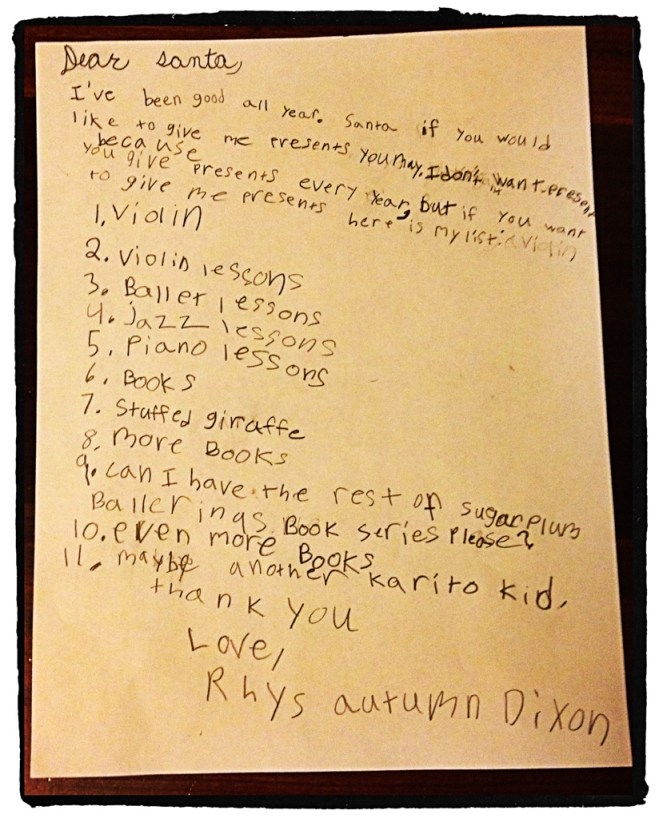 Dear santa,
I've been good all year. Santa if you would
like to give me presents you may. I don't want present
because
you give presents every year, but if you want
to give me presents here is my list: Violin
1, Violin
2. Violin lessons
3. Ballet lessons
4. jazz lessons
5, Piano lessons
6, Books
7. Stuffed giraffe
8, more Books
9. can I have the rest of sugar plum
Ballerings Book series please?
10. even more Books
11, maybe another karito kid,
thank you
Love,
Rhys autumn Dixon